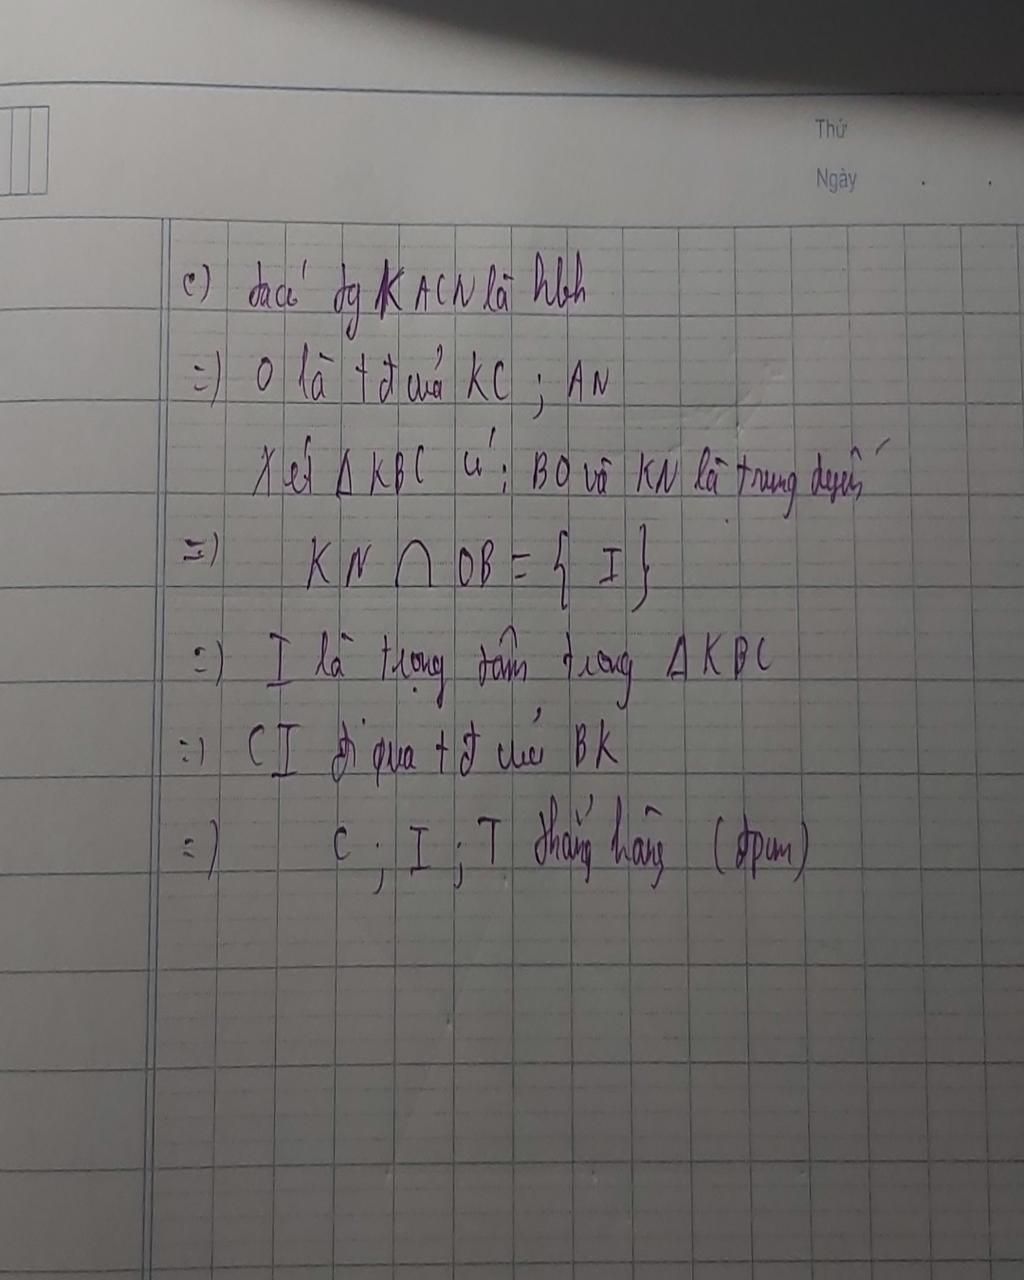 Thứ
Ngày
c) ta có tg KACN là hbh
=) O là tđ của KC ; AN
Xét Δ KBC có : BO và KN là trung tuyến
=) KN ∩ OB = { I }
=) I là trọng tâm trong Δ KBC
=) CI đi qua tđ của BK
=) C ; I ; T thẳng hàng (đpcm)